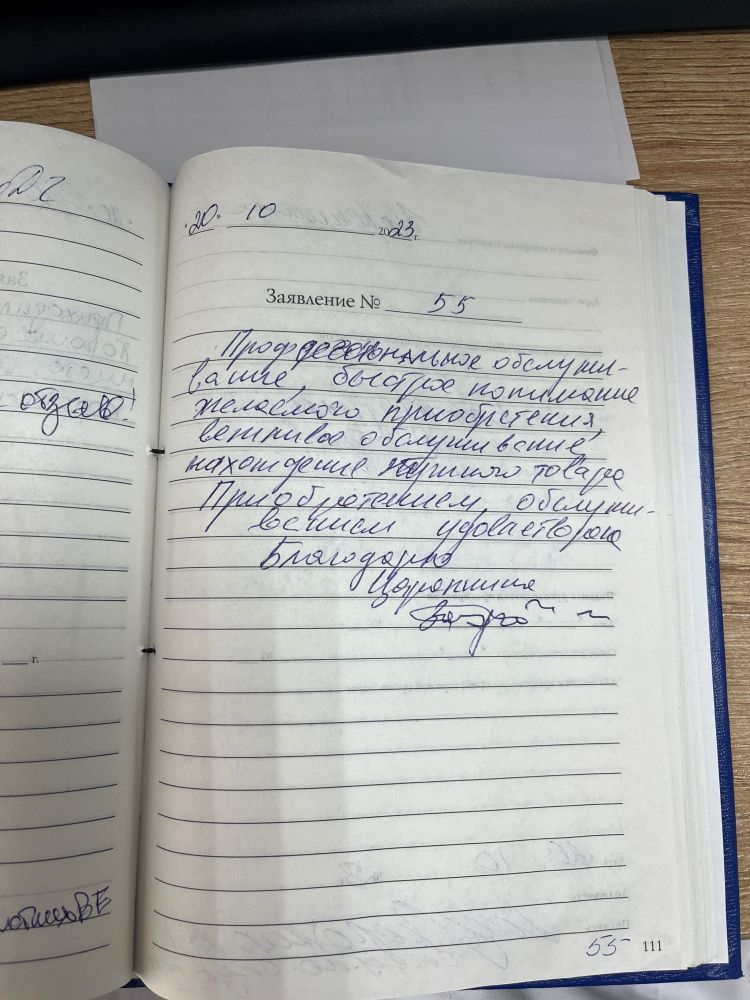 «20» 10 2023 г.
Заявление № 55
Профессиональное обслужи-
вание, быстрое понимание
желаемого приобретения,
вежливое обслуживание,
нахождение нужного товара
Приобретением, обслужи-
ванием удовлетворена
Благодарна
отзыв.
г.
55 111